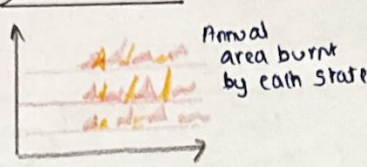 Annual
area burnt
by each state